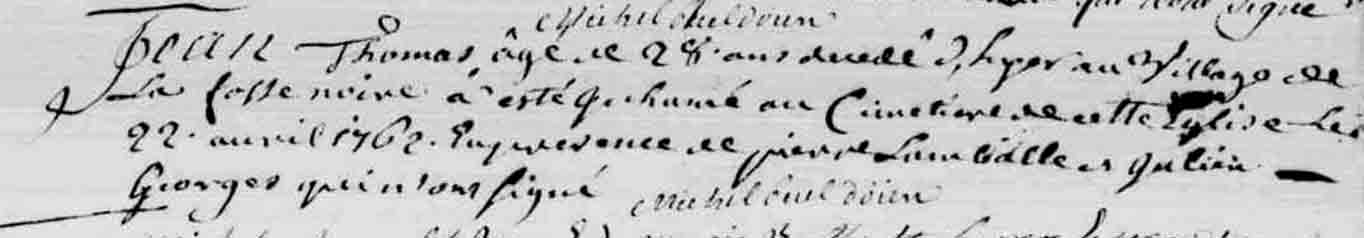 qui n'ont signé
Michel
Jean Thomas âgé de 28 ans decedé d'hyer au Village de
La fosse noire a esté inhumé au Cimetiere de cette Eglise Le
22 avril 1762. En presence de pierre Lamballe et Julien
Georges qui n'ont signé Michel